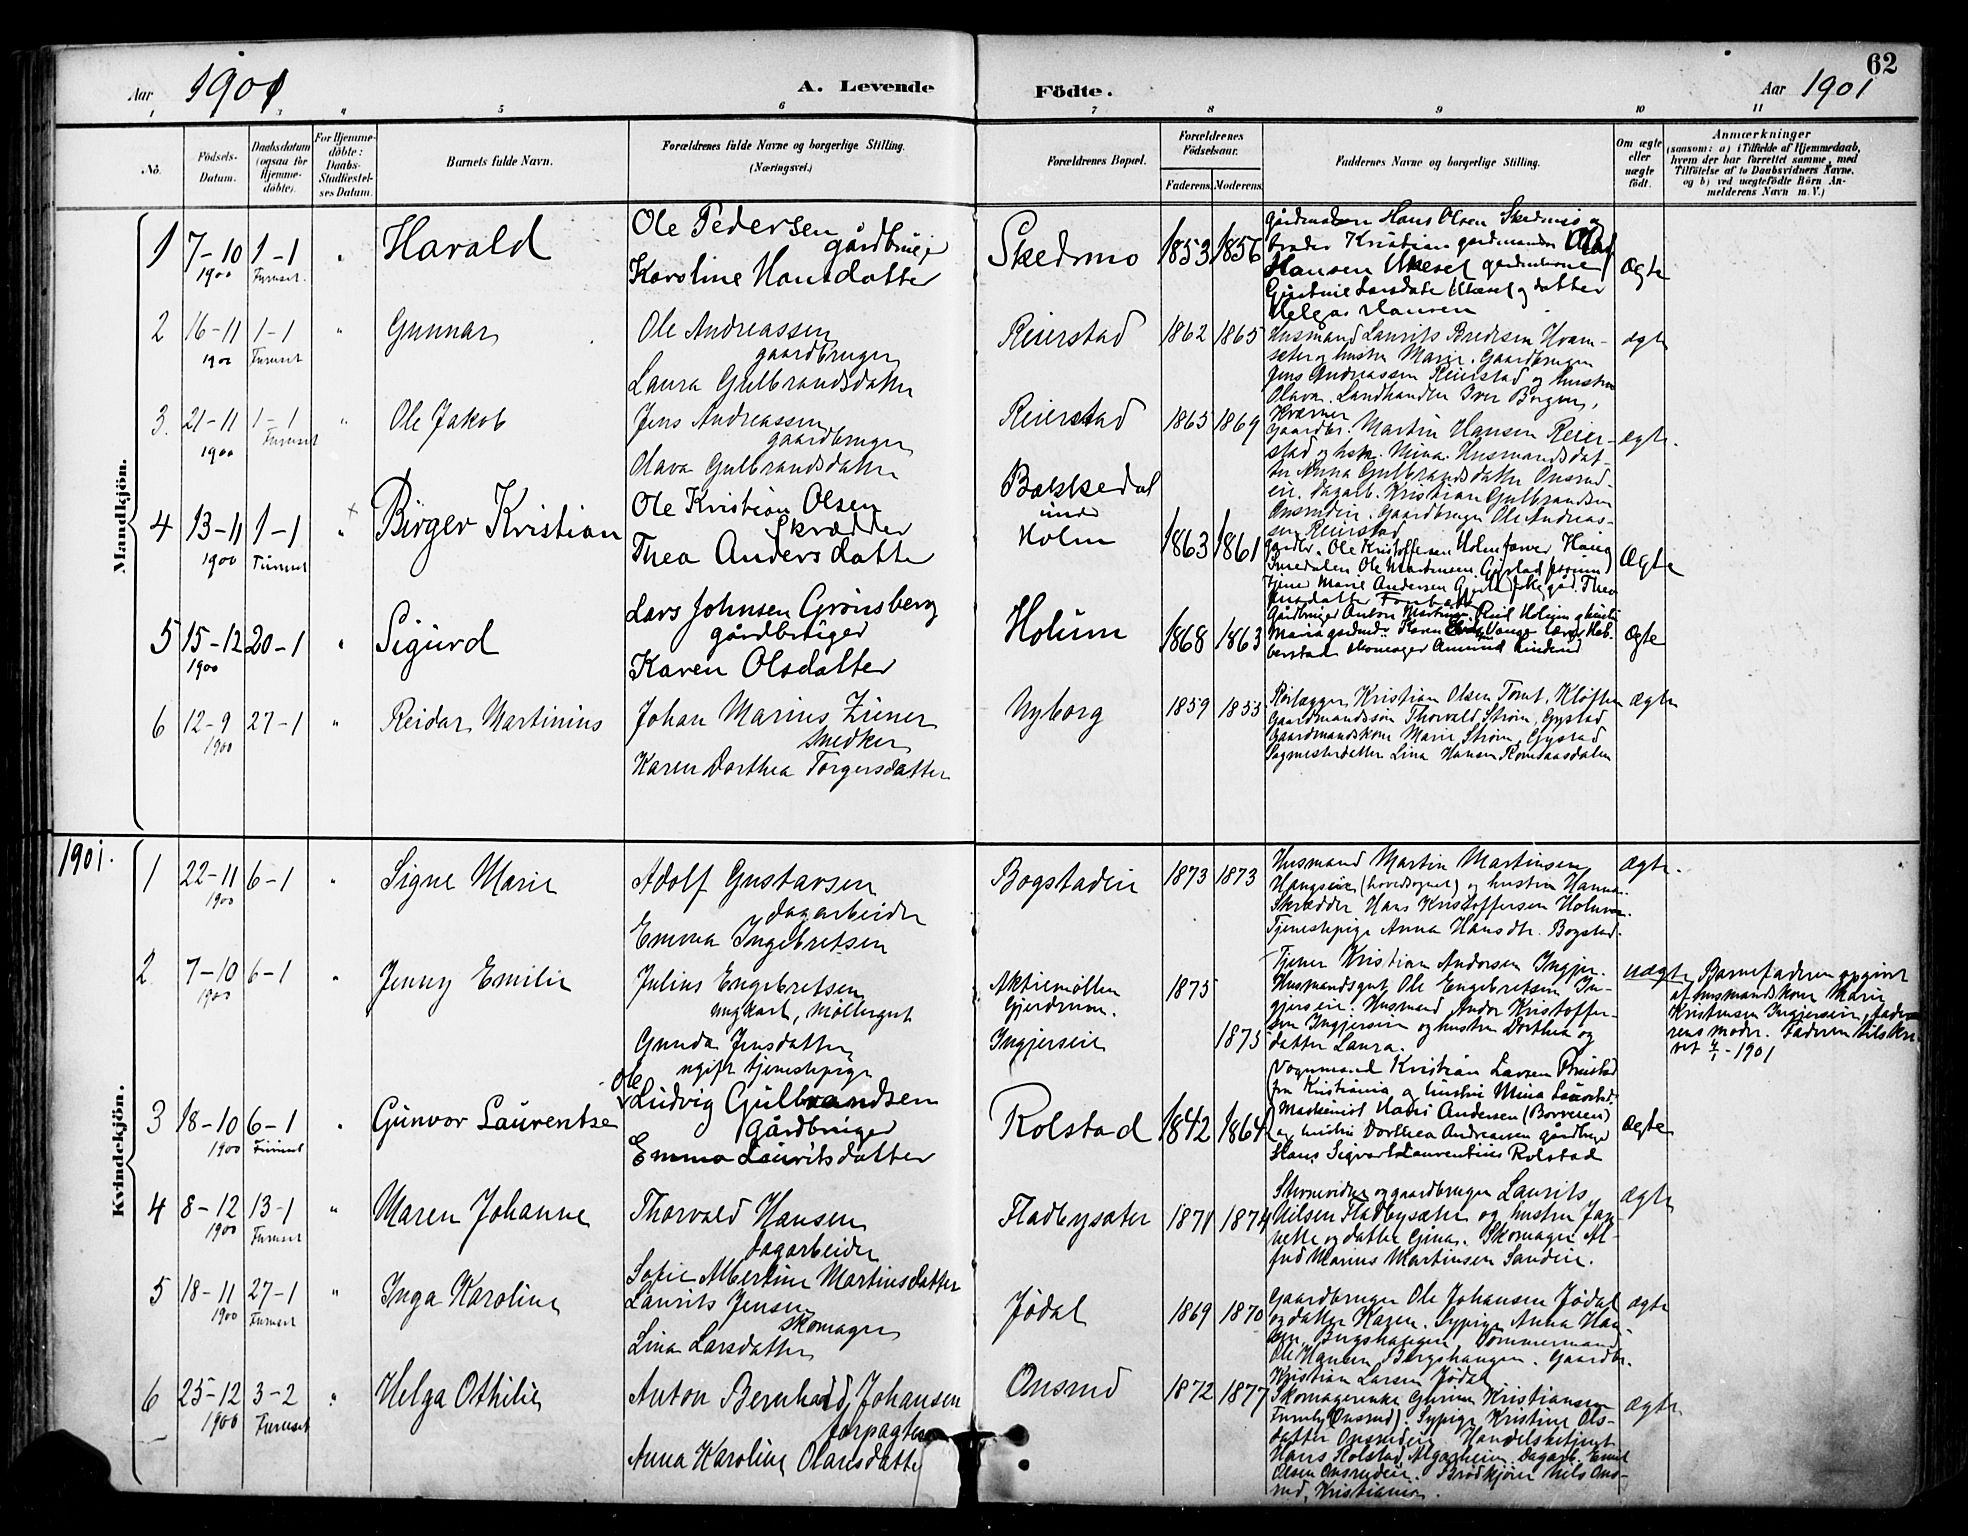 Aar 1901
A. Levende
Födte.
Aar 1901
62
1 3 " 5 6 7 8 9 10 11
No.
Födsels-Datum.
Daabsdatum (ogsaa for Hjemme-döbte).
For Hjemme-döbte: Daabs-Stadfæstel-ses Datum.
Barnets fulde Navn.
Forældrenes fulde Navne og borgerlige Stilling.
(Næringsvei.)
Forældrenes Bopæl.
Forældrenes Födselsaar.
Faderens. Moderens.
Faddernes Navne og borgerlige Stilling.
Om ægte eller uægte födt.
Anmærkninger
(saasom: a) i Tilfælde af Hjemmedaab,
hvem der har forrettet samme, med
Tilföielse af to Daabsvidners Navne,
og b) ved uægtefödte Börn An-
melderens Navn m. V.)
Mandkjön.
1 7-10 1900 1-1 Furuset " Harald
Ole Pedersen
gårdbruger
Karoline Hansdatter
Skedsmo 1853 1856
Gårdmanden Hans Olsen Skedsmo og
broder Kristian gårdmanden Olaf
Hansen Ukesel gårdmkone
Larsdatter Ukesel og datter
Helga Hansen
Ægte
2 16-11 1900 1-1 Furuset " Gunnar
Ole Andreassen
gaardbruger
Laura Gulbrandsdatter
Reierstad 1862 1865
Husmand Laurits Bredesen Hvam-
sæter og hustru Marie. Gaardbruger
Jens Andreassen Reierstad og hustru
Olava. Landhandler Iver Borgen,
Kværner
ægte
3. 21-11 1900 1-1 Furuset " Ole Jakob
Jens Andreassen
gaardbruger
Olava Gulbrandsdatter
Reierstad 1865 1869
Gaardbr. Martin Hansen Reier-
stad og hsk. Mina. Husmandsdat-
ter Anna Gulbrandsdatter Onsrud-
eie. Dagarb. Kristian Gulbrandsen
Onsrudeie. Gaardbruger Ole Andreas-
sen Reierstad
ægte.
4 13-11 1900 1-1 Furuset + " Birger Kristian
Ole Kristian Olsen
Skrædder
Thea Andersdatter
Bækkedal
under
Holm
1863 1861
Gardbr. Ole Kristoffersen Holm
Ole Martinsen Gystad
Marie Andersen Thea
Ægte
5 15-12 1900 20-1 " Sigurd
Lars Johnsen Grønsberg
gårdbruger
Karen Olsdatter
Holum 1868 1863
Gårdbruger Anton
Maria Karen
Skomager Amund
Ægte
6 12-9 1900 27-1 " Reidar Martinius
Johan Marius Ziener
Snedker
Karen Dorthea Torgersdatter
Nyborg 1859 1855
Rørlægger Kristian Olsen Tomt, Kløften
Gaardmandssøn Thorvald Strøm, Gystad
Gaardmandskone Marie Strøm, Gystad
Sagmesterdatter Lina Hansen Romdaasdalen
ægte
1901.
Kvindekjön.
1 22-11 1900 6-1 " Signe Marie
Adolf Gustavsen
dagarbeider
Emma Ingebretsen
Bogstadeie 1873 1873
Husmand Martin Martinsen
Haugseie (hovedsognet) og hustru Hanna.
Skrædder Hans Kristoffersen Holum.
Tjenestepige Anna Hansdtr. Bogstad.
ægte.
2. 7-10 1900 6-1 " Jenny Emilie
Julius Engebretsen
ungkarl, møllergut
Gunda Jensdatter
ugift tjenestepige
Aktiemøllen
Gjerdrum.
Ingjerseie
1875
1875
Tjener Kristian Andersen Ingjer.
Husmandsgut Ole Engebretsen In-
gjerseie. Husmand Andor Kristoffer-
sen Ingjerseie og hustru Dorthea og
datter Laura.
uægte
Barnefaderen opgivet
af husmandskone Marie
Kristensen Ingjerseie, fade-
rens moder. Faderen tilskre-
vet 4/1-1901
3 18-10 1900 6-1 Furuset " Gunvor Laurentse
Ole
Ludvig Gulbrandsen
Gårdbruger
Emma Lauritsdatter
Rolstad 1842 1864
Vognmand Kristian Larsen
fra Kristiania og hustru Mina
Maskinist Hans Andersen (Borreven)
og hustru Dorthea Andreasen gårdbruger
Hans Sigvart Laurentius Rolstad
Ægte
4 8-12 1900 13-1 Furuset " Maren Johanne
Thorvald Hansen
dagarbeider
Sofie Albertine Martinsdatter
Fladbysæter 1871 1874
Skovvidner og gaardbruger Laurits
Nilsen Fladbysæter og hustru Jan-
nette og datter Gina. Skomager Al-
fred Marius Martinsen Sandeie.
ægte
5 18-11 1900 27-1 Furuset " Inga Karoline
Laurits Jensen
skomager
Lina Larsdatter
Jødal 1869 1870
Gaardbruger Ole Johansen Jødal
og datter Karen. Sypige Anna Han-
sen, Bergshaugen. Tømmermand
Ole Hansen Bergshaugen. Gaardbr.
Kristian Larsen Jødal
ægte
6 25-12 1900 3-2 Furuset " Helga Othilie
Anton Bernhard Johansen
forpagter
Anna Karoline Olausdatter
Onsrud 1872 1877
Skomagerenke Gurine Kristiansen
Furuly (Onsrud). Sypige Kristine Ols-
datter Onsrudeie. Handelsbetjent
Hans Holstad Algarheim. Dagarb. Emil
Olsen Onsrudeie. Brødkjører Nils Ons-
rud, Kristiania.
ægte